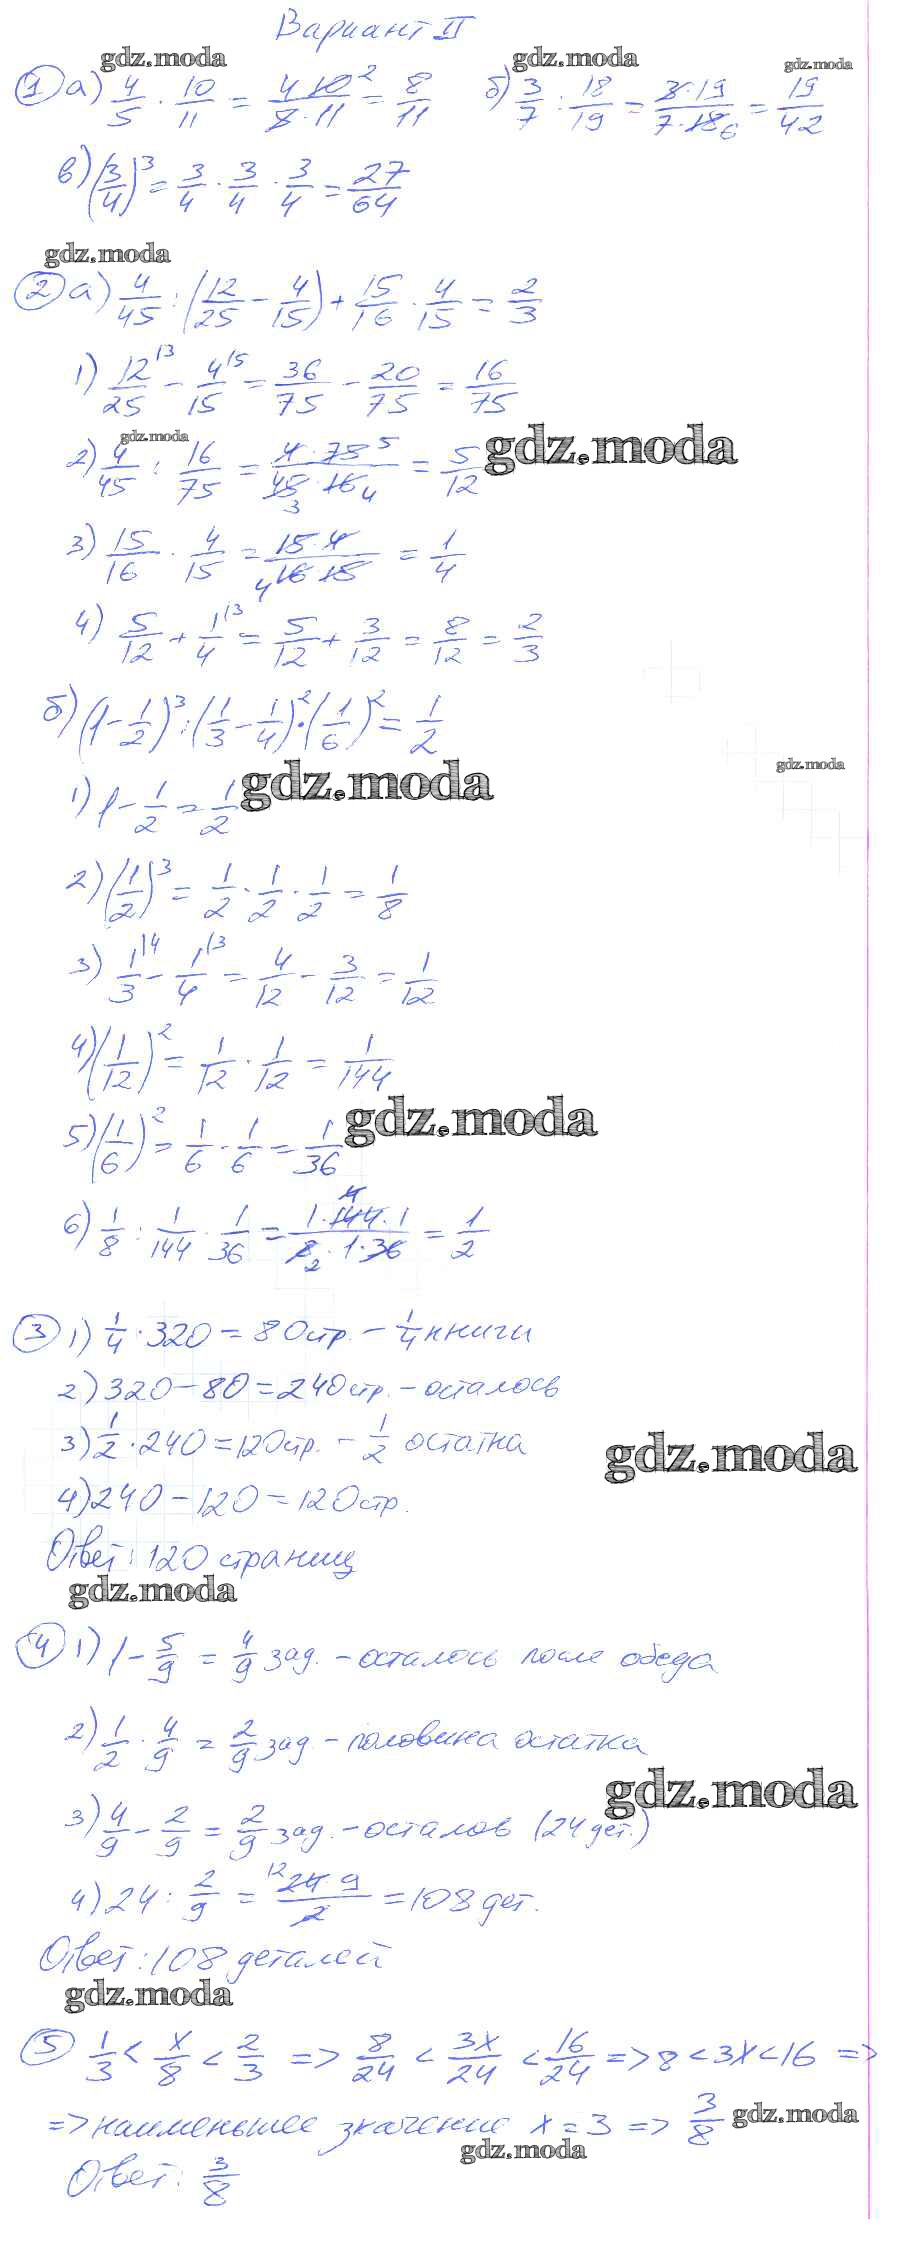 Вариант II
gdz.moda gdz.moda gdz.moda
① а) 4/5 · 10/11 = 4·10²/5·11 = 8/11 б) 3/7 : 18/19 = 3·19/7·18₆ = 19/42
в) (3/4)³ = 3/4 · 3/4 · 3/4 = 27/64
gdz.moda
② а) 4/45 : (12/25 − 4/15) + 15/16 · 4/15 = 2/3
1) 12/25 |3 − 4/15 |5 = 36/75 − 20/75 = 16/75
gdz.moda gdz.moda
2) 4/45 : 16/75 = 4·75⁵/45₃·16₄ = 5/12
3) 15/16 · 4/15 = 15·4/₄16·15 = 1/4
4) 5/12 + 1/4 |3 = 5/12 + 3/12 = 8/12 = 2/3
б) (1 − 1/2)³ : (1/3 − 1/4)² · (1/6)² = 1/2
gdz.moda gdz.moda
1) 1 − 1/2 = 1/2
2) (1/2)³ = 1/2 · 1/2 · 1/2 = 1/8
3) 1/3 |4 − 1/4 |3 = 4/12 − 3/12 = 1/12
4) (1/12)² = 1/12 · 1/12 = 1/144
gdz.moda
5) (1/6)² = 1/6 · 1/6 = 1/36
6) 1/8 : 1/144 · 1/36 = 1·144⁴·1/8₂·1·36 = 1/2
③ 1) 1/4 · 320 = 80 стр. − 1/4 книги
2) 320 − 80 = 240 стр. − осталось
3) 1/2 · 240 = 120 стр. − 1/2 остатка
gdz.moda
4) 240 − 120 = 120 стр.
Ответ: 120 страниц
gdz.moda
④ 1) 1 − 5/9 = 4/9 зад. − осталось после обеда
2) 1/2 · 4/9 = 2/9 зад − половина остатка
gdz.moda
3) 4/9 − 2/9 = 2/9 зад. − осталов (24 дет.)
4) 24 : 2/9 = ¹²24·9/2 = 108 дет.
Ответ: 108 деталей
gdz.moda
⑤ 1/3 < x/8 < 2/3 => 8/24 < 3x/24 < 16/24 => 8 < 3x < 16 =>
=> наименьшее значение x = 3 => 3/8
gdz.moda
gdz.moda
Ответ: 3/8